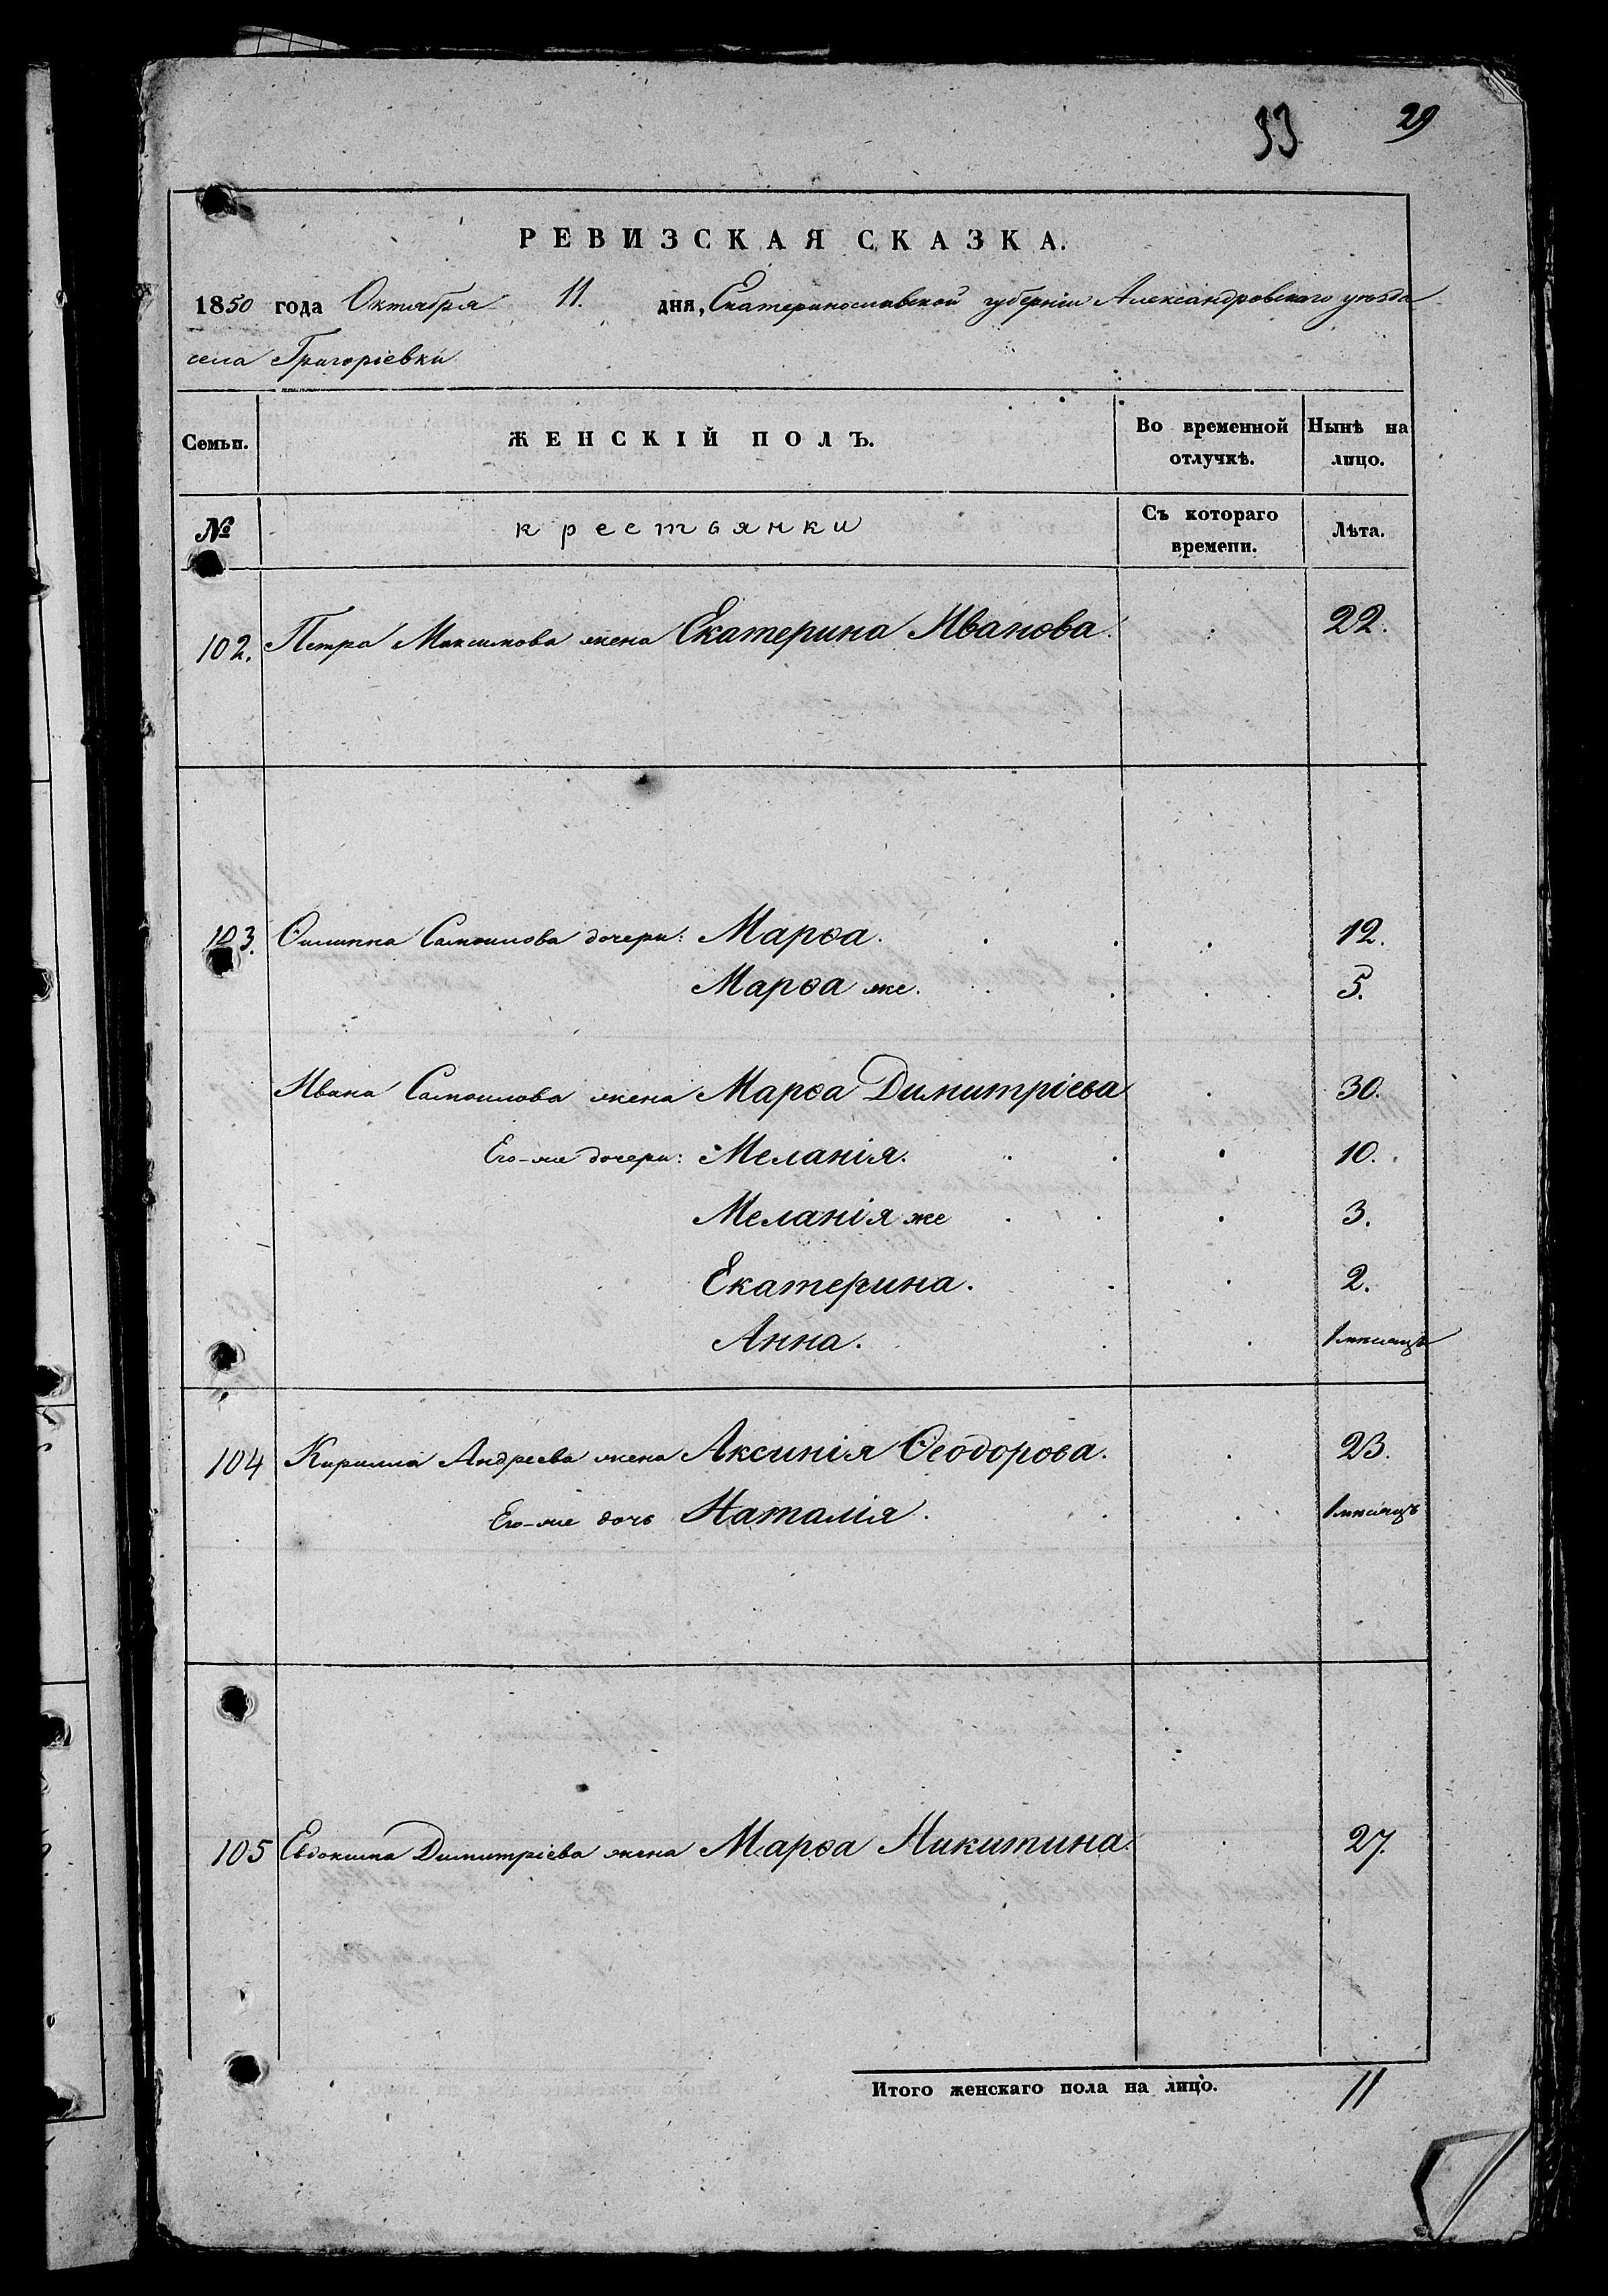 33 29
РЕВИЗСКАЯ СКАЗКА.
1850 года Октября 11. дня, Екатеринославской губерніи Александровскаго уѣзда
села Григоріевки
Семьи. ЖЕНСКІЙ ПОЛЪ. Во временной отлучкѣ. Нынѣ на лицо.
№ крестьянки Съ котораго времени. Лѣта.
102. Петра Максимова жена Екатерина Иванова. 22.
103. Ѳилиппа Самоилова дочери: Марѳа. 12.
Марѳа же. 5.
Ивана Самоилова жена Марѳа Димитріева 30.
Его-же дочери: Меланія. 10.
Меланія же 3.
Екатерина. 2.
Анна. 1 мѣсяцъ
104 Кирилла Андреева жена Аксинія Ѳеодорова. 23.
Его-же дочь Наталія. 1 мѣсяцъ
105 Евдокима Димитріева жена Марѳа Никитина. 27.
Итого женскаго пола на лицо. 11